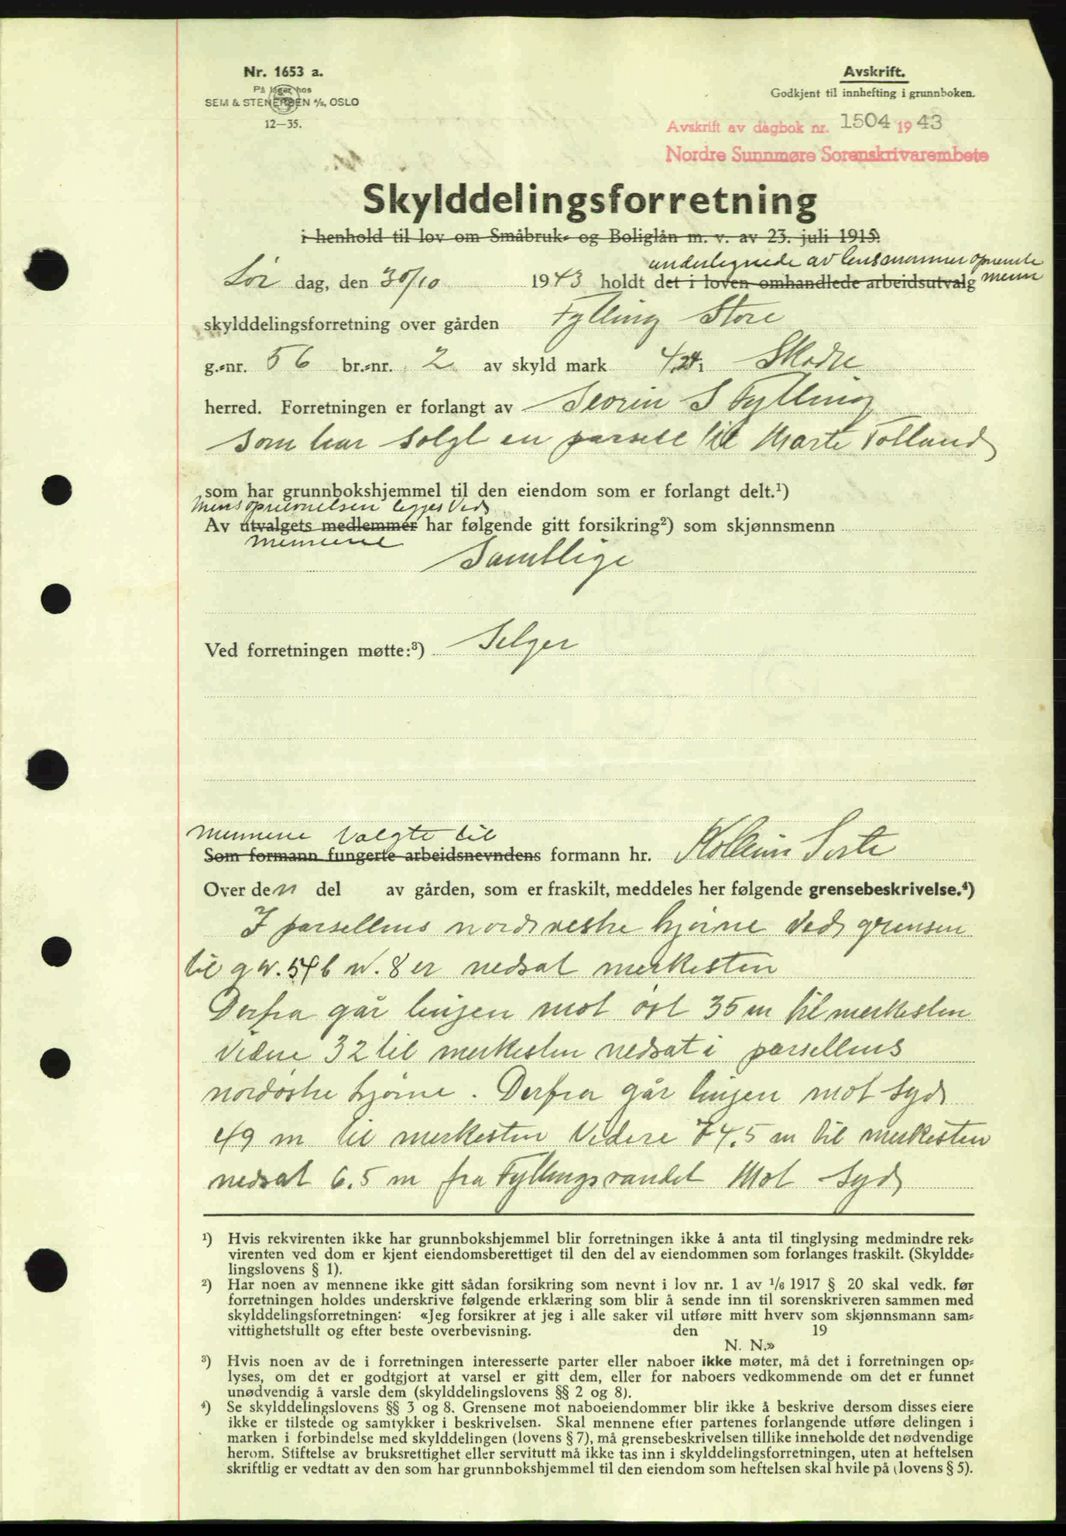 Nr. 1653 a.
På lager hos
SEM & STENERSEN A/S, OSLO
12-35.
Avskrift.
Godkjent til innhefting i grunnboken.
Avskrift av dagbok nr. 1504 1943
Nordre Sunnmøre Sorenskrivarembete
Skylddelingsforretning
i henhold til lov om Småbruk- og Boliglån m. v. av 23. juli 1915.
underlignede av lensmannen opnevnte
Lør dag, den 30/10 1943 holdt det i loven omhandlede arbeidsutvalg menn
skylddelingsforretning over gården Fylling Store
g.-nr. 56 br.-nr. 2 av skyld mark 4,24 i Skodje
herred. Forretningen er forlangt av Severin S Fylling
som har solgt en parsell til Marte Tolland
som har grunnbokshjemmel til den eiendom som er forlangt delt.¹)
Mensopnevnelsen legges ved
Av utvalgets medlemmer har følgende gitt forsikring²) som skjønnsmenn
mennene
Samtlige
Ved forretningen møtte:³) Selger
mennene valgte til
Som formann fungerte arbeidsnevndens formann hr. Kolbein
Over den del av gården, som er fraskilt, meddeles her følgende grensebeskrivelse.⁴)
I parsellens nordvestre hjørne ved grensen
til g nr. 56 nr. 8 er nedsat merkesten
Derfra går linjen mot øst 35 m til merkesten
Videre 32 til merkesten nedsat i parsellens
nordøstre hjørne. Derfra går linjen mot syd
49 m til merkesten Videre 74.5 m til merkesten
nedsat 6.5 m fra Fyllingsvandet Mot syd
¹) Hvis rekvirenten ikke har grunnbokshjemmel blir forretningen ikke å anta til tinglysing medmindre rek-
virenten ved dom er kjent eiendomsberettiget til den del av eiendommen som forlanges fraskilt. (Skyldde-
lingslovens § 1).
²) Har noen av mennene ikke gitt sådan forsikring som nevnt i lov nr. 1 av 1/6 1917 § 20 skal vedk. før
forretningen holdes underskrive følgende erklæring som blir å sende inn til sorenskriveren sammen med
skylddelingsforretningen: «Jeg forsikrer at jeg i alle saker vil utføre mitt hverv som skjønnsmann sam-
vittighetsfullt og efter beste overbevisning. den 19
N. N.»
³) Hvis noen av de i forretningen interesserte parter eller naboer ikke møter, må det i forretningen op-
lyses, om det er godtgjort at varsel er gitt dem, eller for naboers vedkommende om det er funnet
unødvendig å varsle dem (skylddelingslovens §§ 2 og 8).
⁴) Se skylddelingslovens §§ 3 og 8. Grensene mot naboeiendommer blir ikke å beskrive dersom disses eiere
ikke er tilstede og samtykker i beskrivelsen. Skal mennene efter partenes forlangende utføre delingen i
marken i forbindelse med skylddelingen (lovens § 7), må grensebeskrivelsen tillike inneholde det nødvendige
herom. Stiftelse av bruksrettighet eller servitutt må ikke tas inn i skylddelingsforretningen, uten at heftelsen
skriftlig er vedtatt av den som har grunnbokshjemmel til den eiendom som heftelsen skal hvile på (lovens § 5).